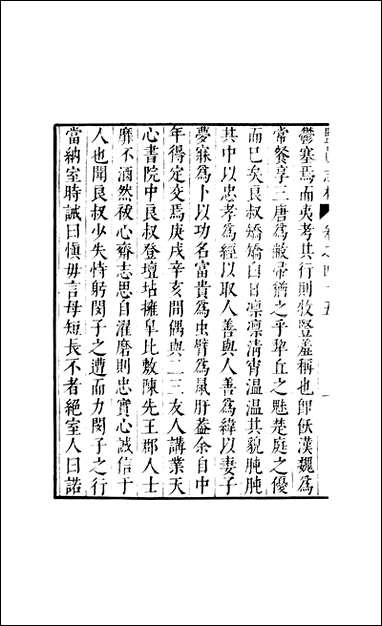 卷之四十五
鬱塞焉而夷考其行則牧豎羞稱也卽佽漢魏爲
常餐享三唐爲敝帚譬之乎犂丘之魅楚庭之優
而已矣良叔矯矯白日凜凜清霄溫溫其貌肫肫
其中以忠孝爲經以取人善與人善爲緯以妻子
夢寐爲卜以功名富貴爲虫臂爲鼠肝葢余自中
年得定交焉庚戌辛亥間偶與二三友人講業天
心書院中良叔登壇坫擁皐比敷陳先王郡人士
靡不洒然祓心齊志思自濯磨則忠實心誠信于
人也聞良叔少失恃躬閔子之遭而力閔子之行
當納室時誡曰愼毋言母短長不者絕室人曰諾